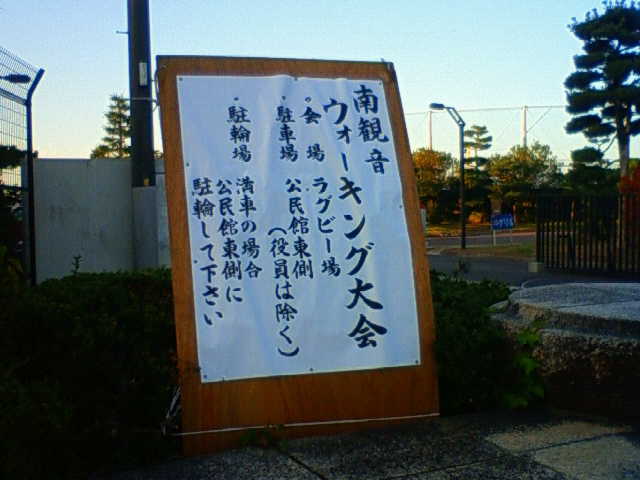 南観音
ウォーキング大会
・会場 ラグビー場
・駐車場 公民館東側
(役員は除く)
・駐輪場 満車の場合
公民館東側に
駐輪して下さい